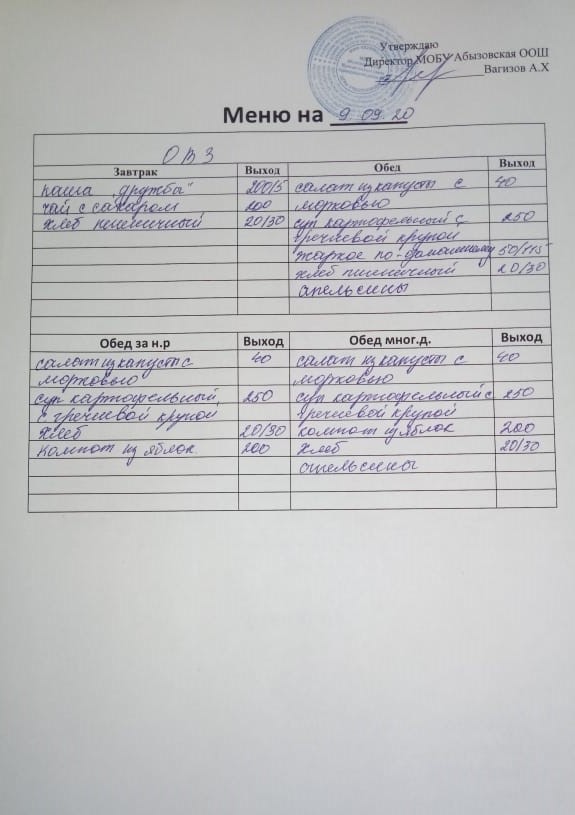 Утверждаю
Директор МОБУ Абызовская ООШ
Вагизов А.Х
Меню на 9.09.20
ОВЗ
Завтрак Выход Обед Выход
каша "дружба" 200/5 салат из капусты с 40
чай с сахаром 200 морковью
хлеб пшеничный 20/30 суп картофельный с 250
гречневой крупой
жаркое по-домашнему 50/115
хлеб пшеничный 20/30
апельсины
Обед за н.р Выход Обед мног.д. Выход
салат из капусты с 40 салат из капусты с 40
морковью морковью
суп картофельный 250 суп картофельный с 250
с гречневой крупой гречневой крупой
хлеб 20/30 компот из яблок 200
компот из яблок 200 хлеб 20/30
апельсины